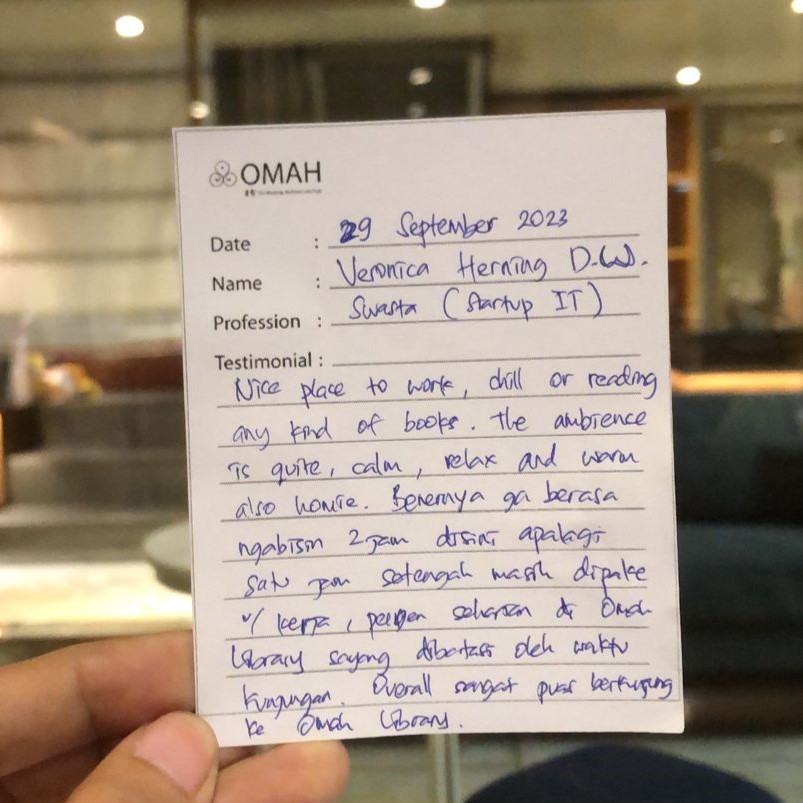 OMAH
Date : 29 September 2023
Name : Veronica Herning D.W.
Profession : Swasta (Startup IT)
Testimonial :
Nice place to work, chill or reading
any kind of books. The ambience
is quite, calm, relax and warm
also homie. Benernya ga berasa
ngabisin 2 jam disini apalagi
satu jam setengah masih dipake
u/ kerja, pengen seharian di Omah
Library sayang dibatasi oleh waktu
kunjungan. Overall sangat puas berkunjung
ke Omah Library.